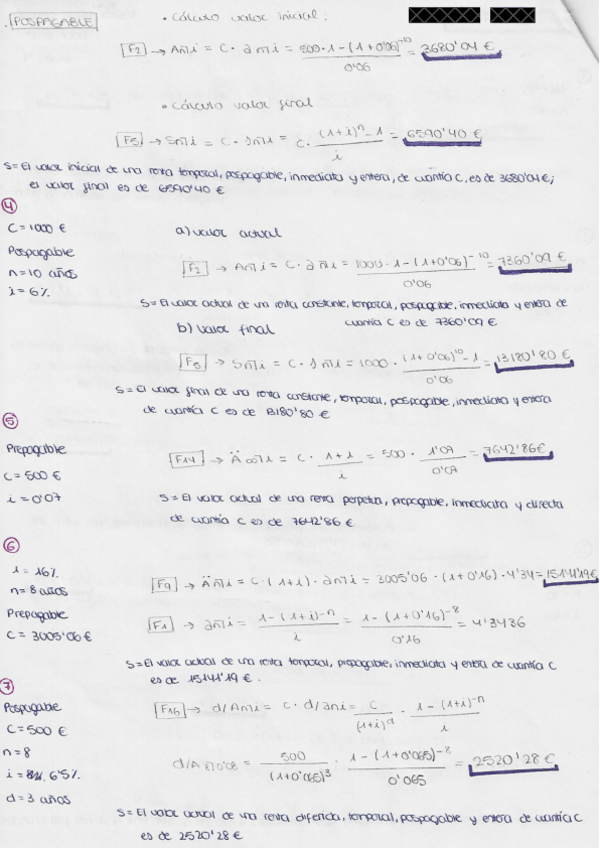 POSPAGABLE
• Cálculo valor inicial:
F2 → An┐i = C · an┐i = 500 · 1 - (1+0'06)^-10 / 0'06 = 3680'04 €
• Cálculo valor final
F5 → Sn┐i = C · sn┐i = C · (1+i)^n - 1 / i = 6590'40 €
S = El valor inicial de una renta temporal, pospagable, inmediata y entera, de cuantía C, es de 3680'04 €;
el valor final es de 6590'40 €
4
C = 1000 €
a) valor actual
Pospagable
n = 10 años
i = 6%
F2 → An┐i = C · an┐i = 1000 · 1 - (1+0'06)^-10 / 0'06 = 7360'09 €
S = El valor actual de una renta constante, temporal, pospagable, inmediata y entera de
cuantía C es de 7360'09 €
b) valor final
F5 → Sn┐i = C · sn┐i = 1000 · (1+0'06)^10 - 1 / 0'06 = 13180'80 €
S = El valor final de una renta constante, temporal, pospagable, inmediata y entera
de cuantía C es de 13180'80 €
5
Prepagable
C = 500 €
i = 0'07
F14 → Ä∞┐i = C · 1+i / i = 500 · 1'07 / 0'07 = 7642'86 €
S = El valor actual de una renta perpetua, prepagable, inmediata y directa
de cuantía C es de 7642'86 €
6
i = 16%
n = 8 años
Prepagable
C = 3005'06 €
F9 → Än┐i = C · (1+i) · an┐i = 3005'06 · (1+0'16) · 4'34 = 15141'19 €
F1 → an┐i = 1 - (1+i)^-n / i = 1 - (1+0'16)^-8 / 0'16 = 4'3436
S = El valor actual de una renta temporal, prepagable, inmediata y entera de cuantía C
es de 15141'19 €.
7
Pospagable
C = 500 €
n = 8
i = 6'5%
d = 3 años
F16 → d/An┐i = C · d/an┐i = C / (1+i)^d · 1 - (1+i)^-n / i
= 500 / (1+0'065)^3 · 1 - (1+0'065)^-8 / 0'065 = 2520'28 €
S = El valor actual de una renta diferida, temporal, pospagable y entera de cuantía C
es de 2520'28 €